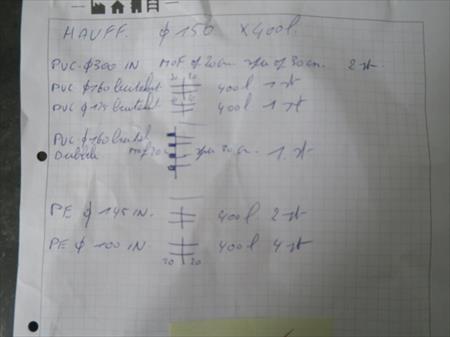 HAUFF. φ 150 x 400l
PVC φ300 IN MOF of 20cm. spie of 30cm. 2 st.
20 20
PVC φ160 buitenkant 400l 1 st
PVC φ125 buitenkant 400l 1 st
PVC φ160
Dubbele MOF 20 spie 30 cm. 1. st
PE φ 145 IN. 400l 2 st
PE φ 100 IN. 400l 4 st
20 20